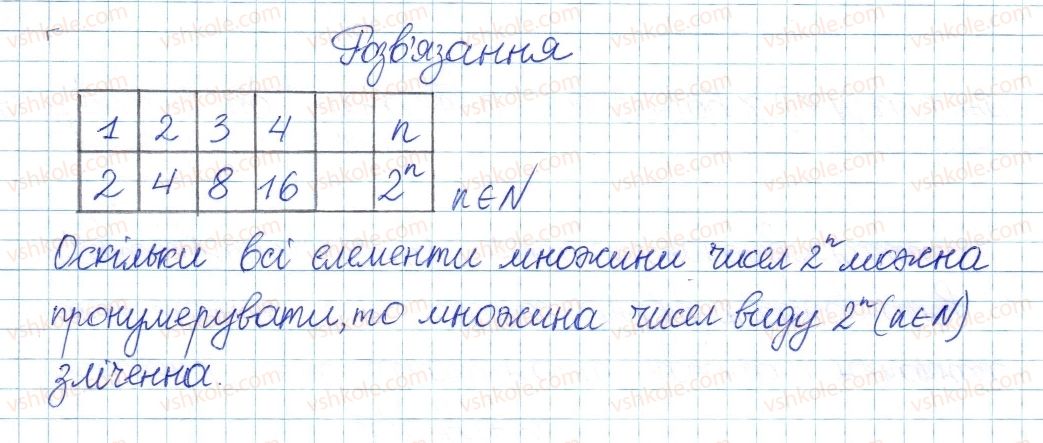 Розв'язання
1 2 3 4 n
2 4 8 16 2ⁿ n∈N
Оскільки всі елементи множини чисел 2ⁿ можна
пронумерувати, то множина чисел виду 2ⁿ (n∈N)
зліченна.